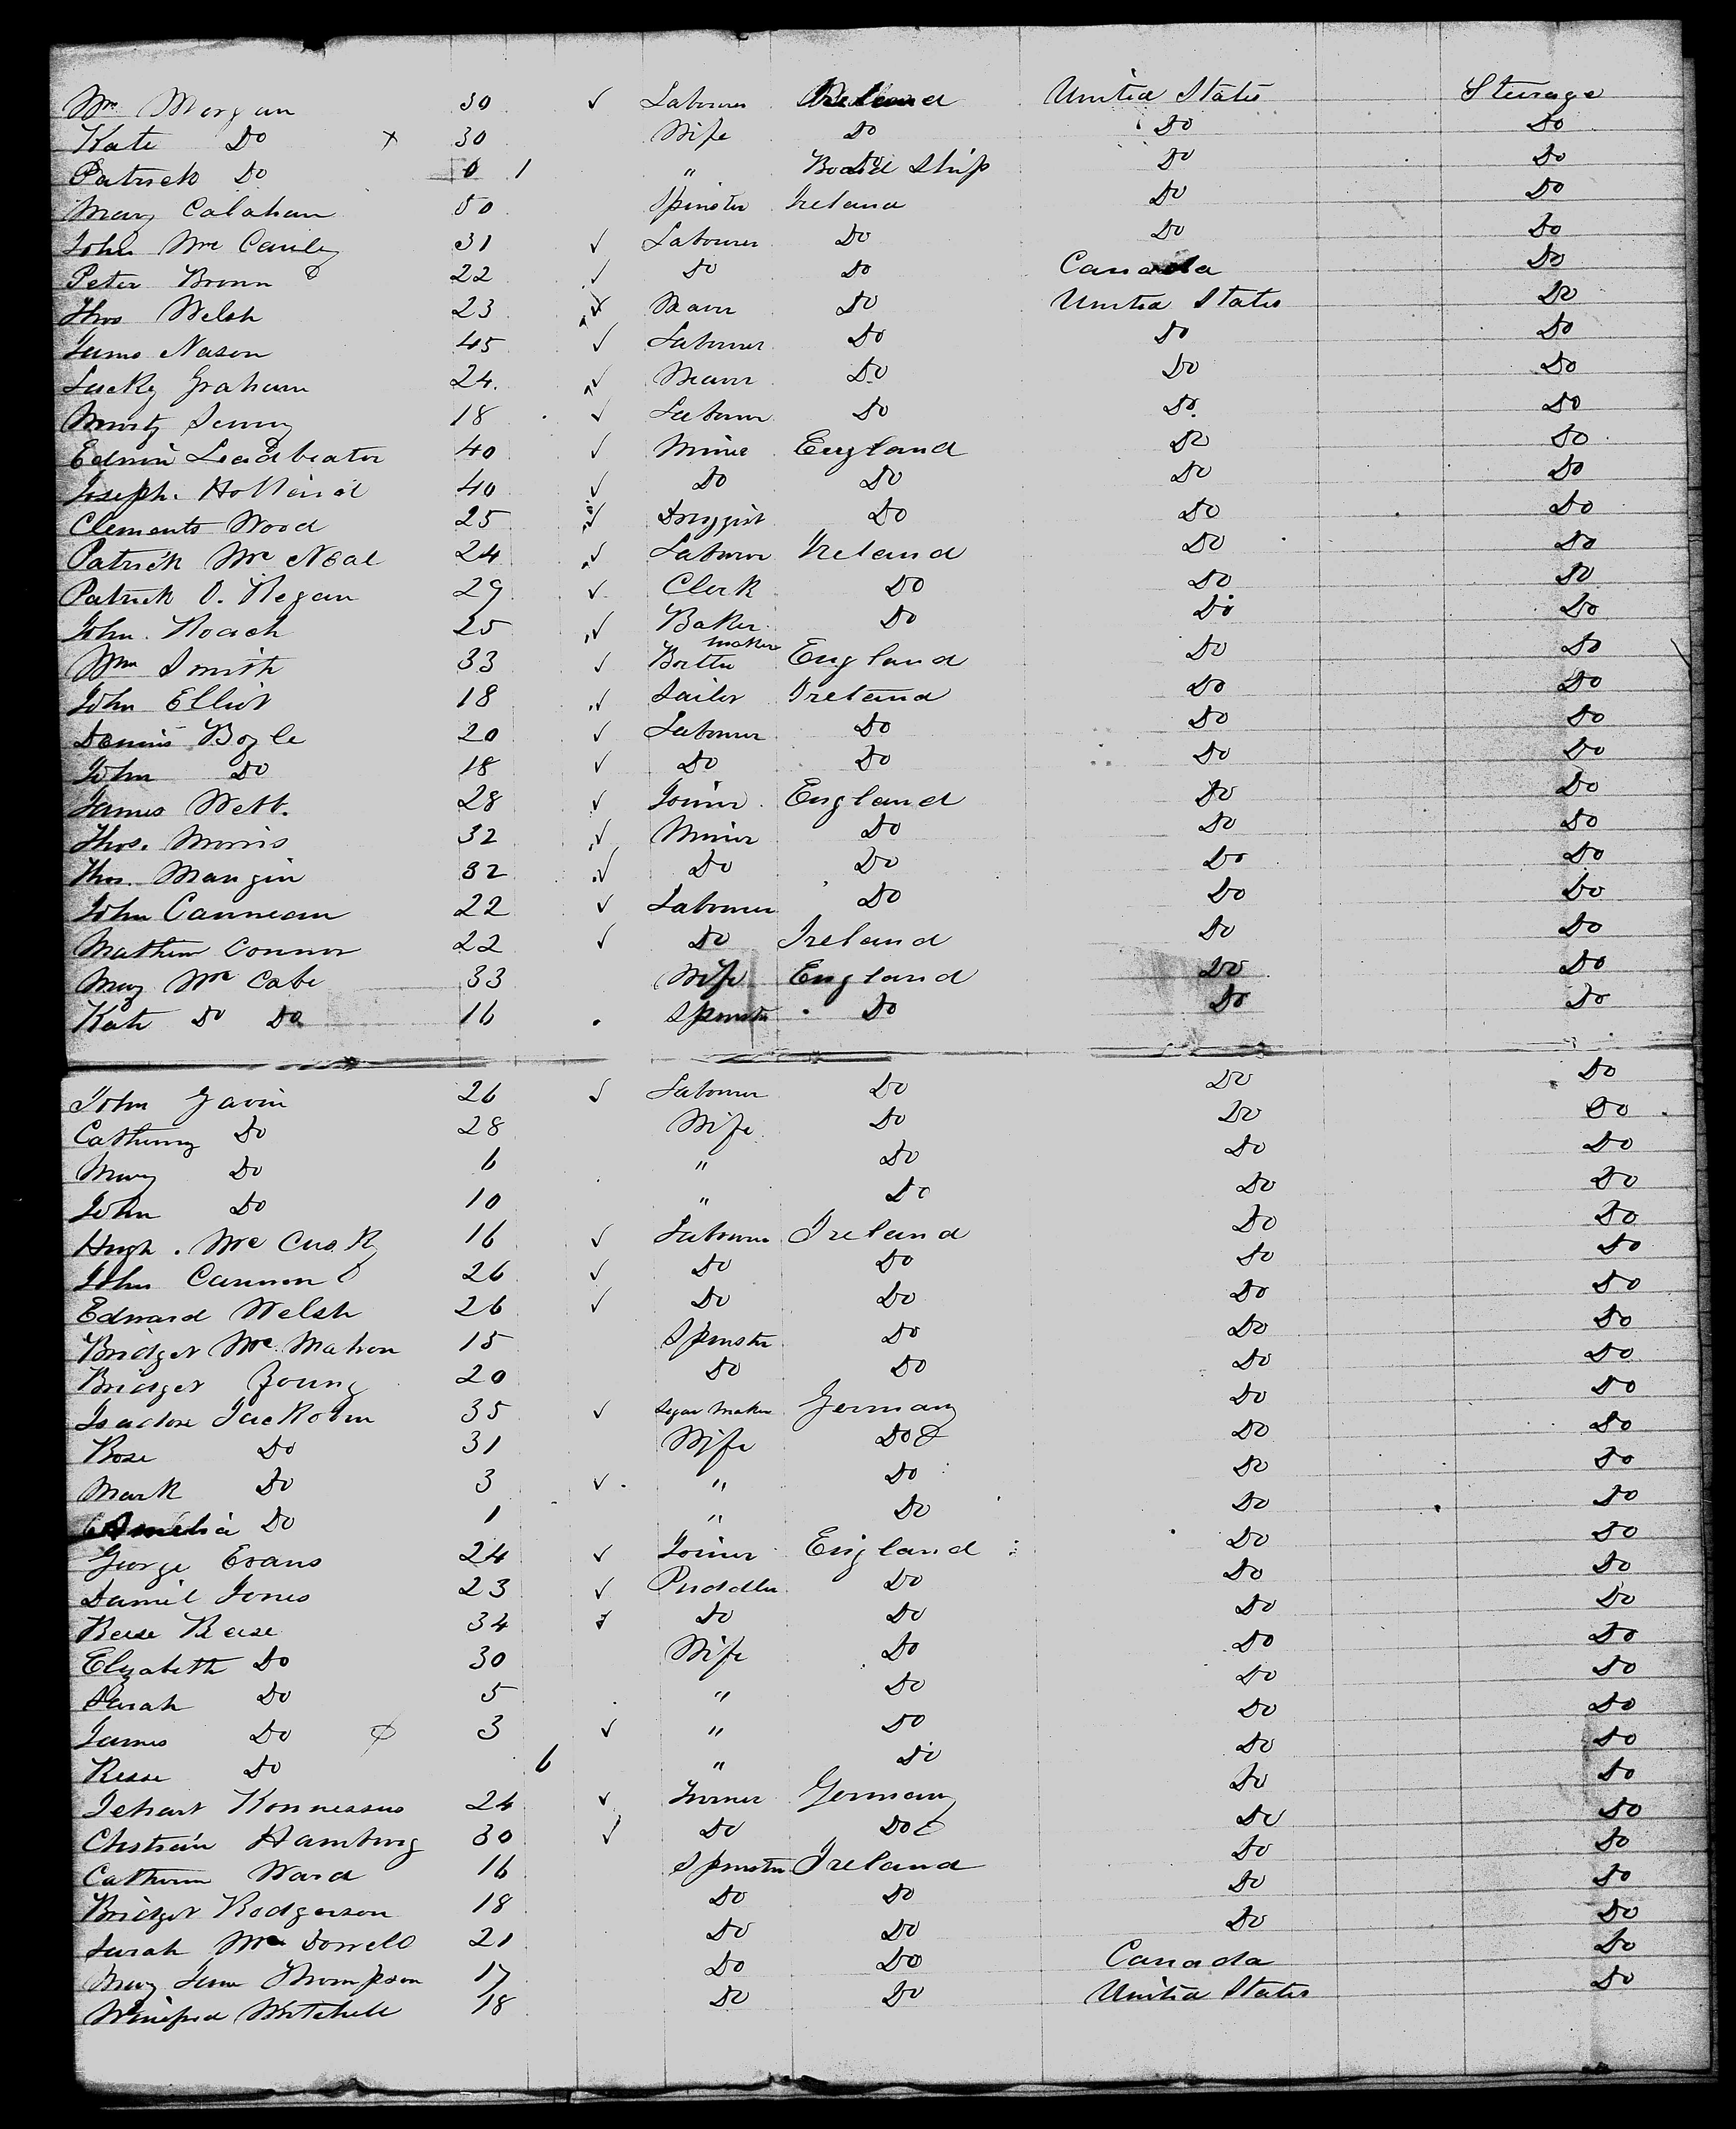 Wm Morgan 30 Labourer Ireland United States Steerage
Kate Do 30 Wife Do Do Do
Patrick Do 0 1 " Board Ship Do Do
Mary Calahan 50 Spinster Ireland Do Do
John Mc Cauley 31 Labourer Do Do Do
Peter Brown 22 Do Do Canada Do
Thos Welsh 23 Do United States Do
James Nason 45 Labourer Do Do Do
Graham 24 Do Do Do
18 Labourer Do Do Do
Edwin Leadbeater 40 Miner England Do Do
Joseph Holland 40 Do Do Do Do
Clements Wood 25 Druggist Do Do Do
Patrick Mc Neal 24 Labourer Ireland Do Do
Patrick O. Regan 29 Clerk Do Do Do
John Roach 25 Baker Do Do Do
Wm Smith 33 maker England Do Do
John Elliot 18 Sailor Ireland Do Do
Dennis Boyle 20 Labourer Do Do Do
John Do 18 Do Do Do Do
James Webb. 28 Joiner England Do Do
Thos. Morris 32 Miner Do Do Do
Thos. Mangin 32 Do Do Do Do
John Cannean 22 Labourer Do Do Do
Mathew Connor 22 Do Ireland Do Do
Mary Mc Cabe 33 Wife England Do Do
Kate Do Do 16 Spinster Do Do Do
John Gavin 26 Labourer Do Do Do
Do 28 Wife Do Do Do
Mary Do 6 " Do Do Do
John Do 10 " Do Do Do
Hugh Mc 16 Labourer Ireland Do Do
John Cannon 26 Do Do Do Do
Edward Welsh 26 Do Do Do Do
Bridget Mc Mahon 15 Spinster Do Do Do
Bridget Young 20 Do Do Do Do
Isadore 35 Segar Maker Germany Do Do
Rose Do 31 Wife Do Do Do
Mark Do 3 " Do Do Do
Amelia Do 1 " Do Do Do
George Evans 24 Joiner England Do Do
Daniel Jones 23 Puddler Do Do Do
Reese Reese 34 Do Do Do Do
Elizabeth Do 30 Wife Do Do Do
Sarah Do 5 " Do Do Do
James Do 3 " Do Do Do
Reese Do 6 " Do Do Do
24 Germany Do Do
Hamburg 30 Do Do Do Do
Ward 16 Spinster Ireland Do Do
Bridget Rodgerson 18 Do Do Do Do
Sarah Mc 21 Do Do Do Do
Mary Jane Thompson 17 Do Do Canada Do
Winifred Mitchell 18 Do Do United States Do